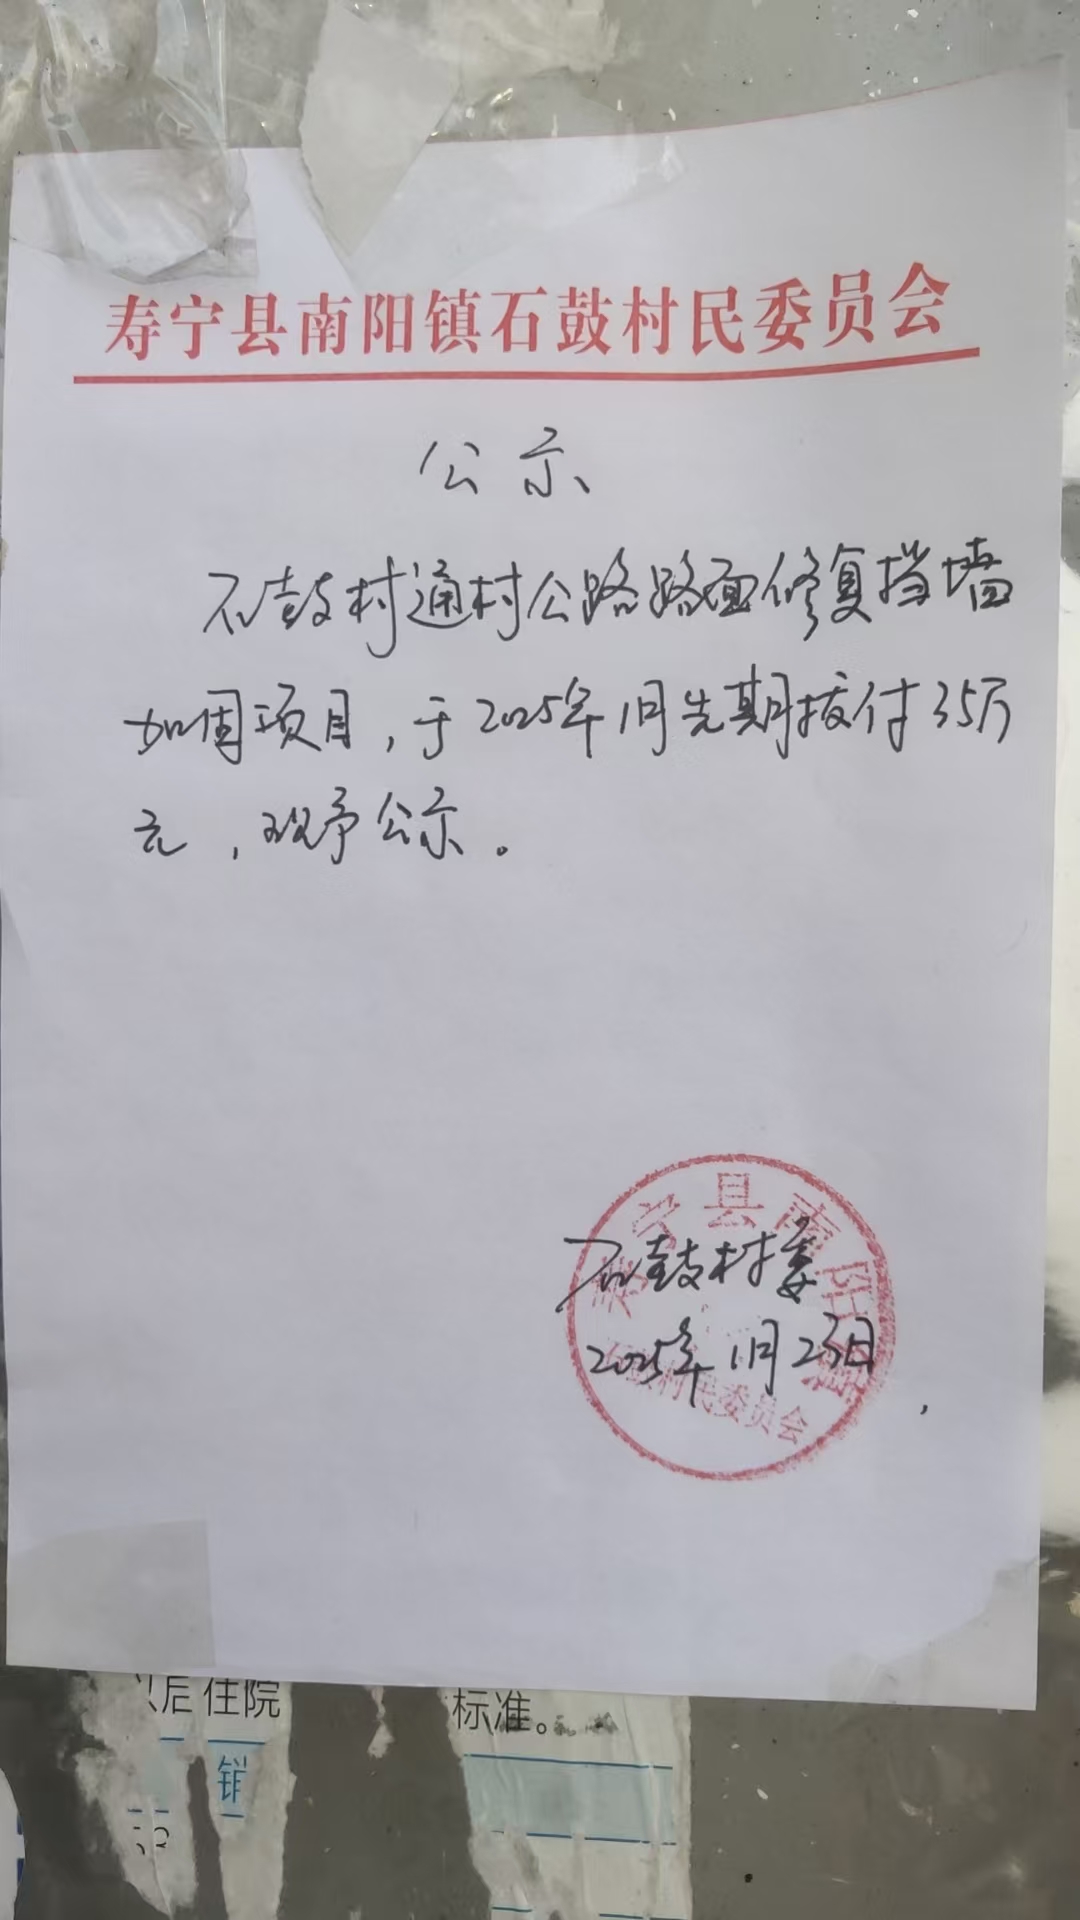 寿宁县南阳镇石鼓村民委员会
公示
石鼓村通村公路路面修复挡墙
加固项目，于2025年1月先期拨付35万
元，现予公示。
寿宁县南阳镇
石鼓村委
2025年1月23日
石鼓村民委员会
以后住院
标准。
销